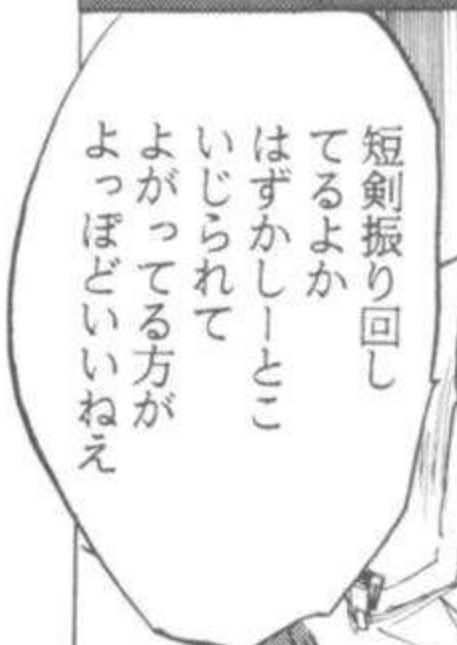 短剣振り回し
てるよか
はずかしーとこ
いじられて
よがってる方が
よっぽどいいねえ